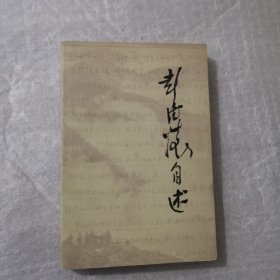 彭德怀自述